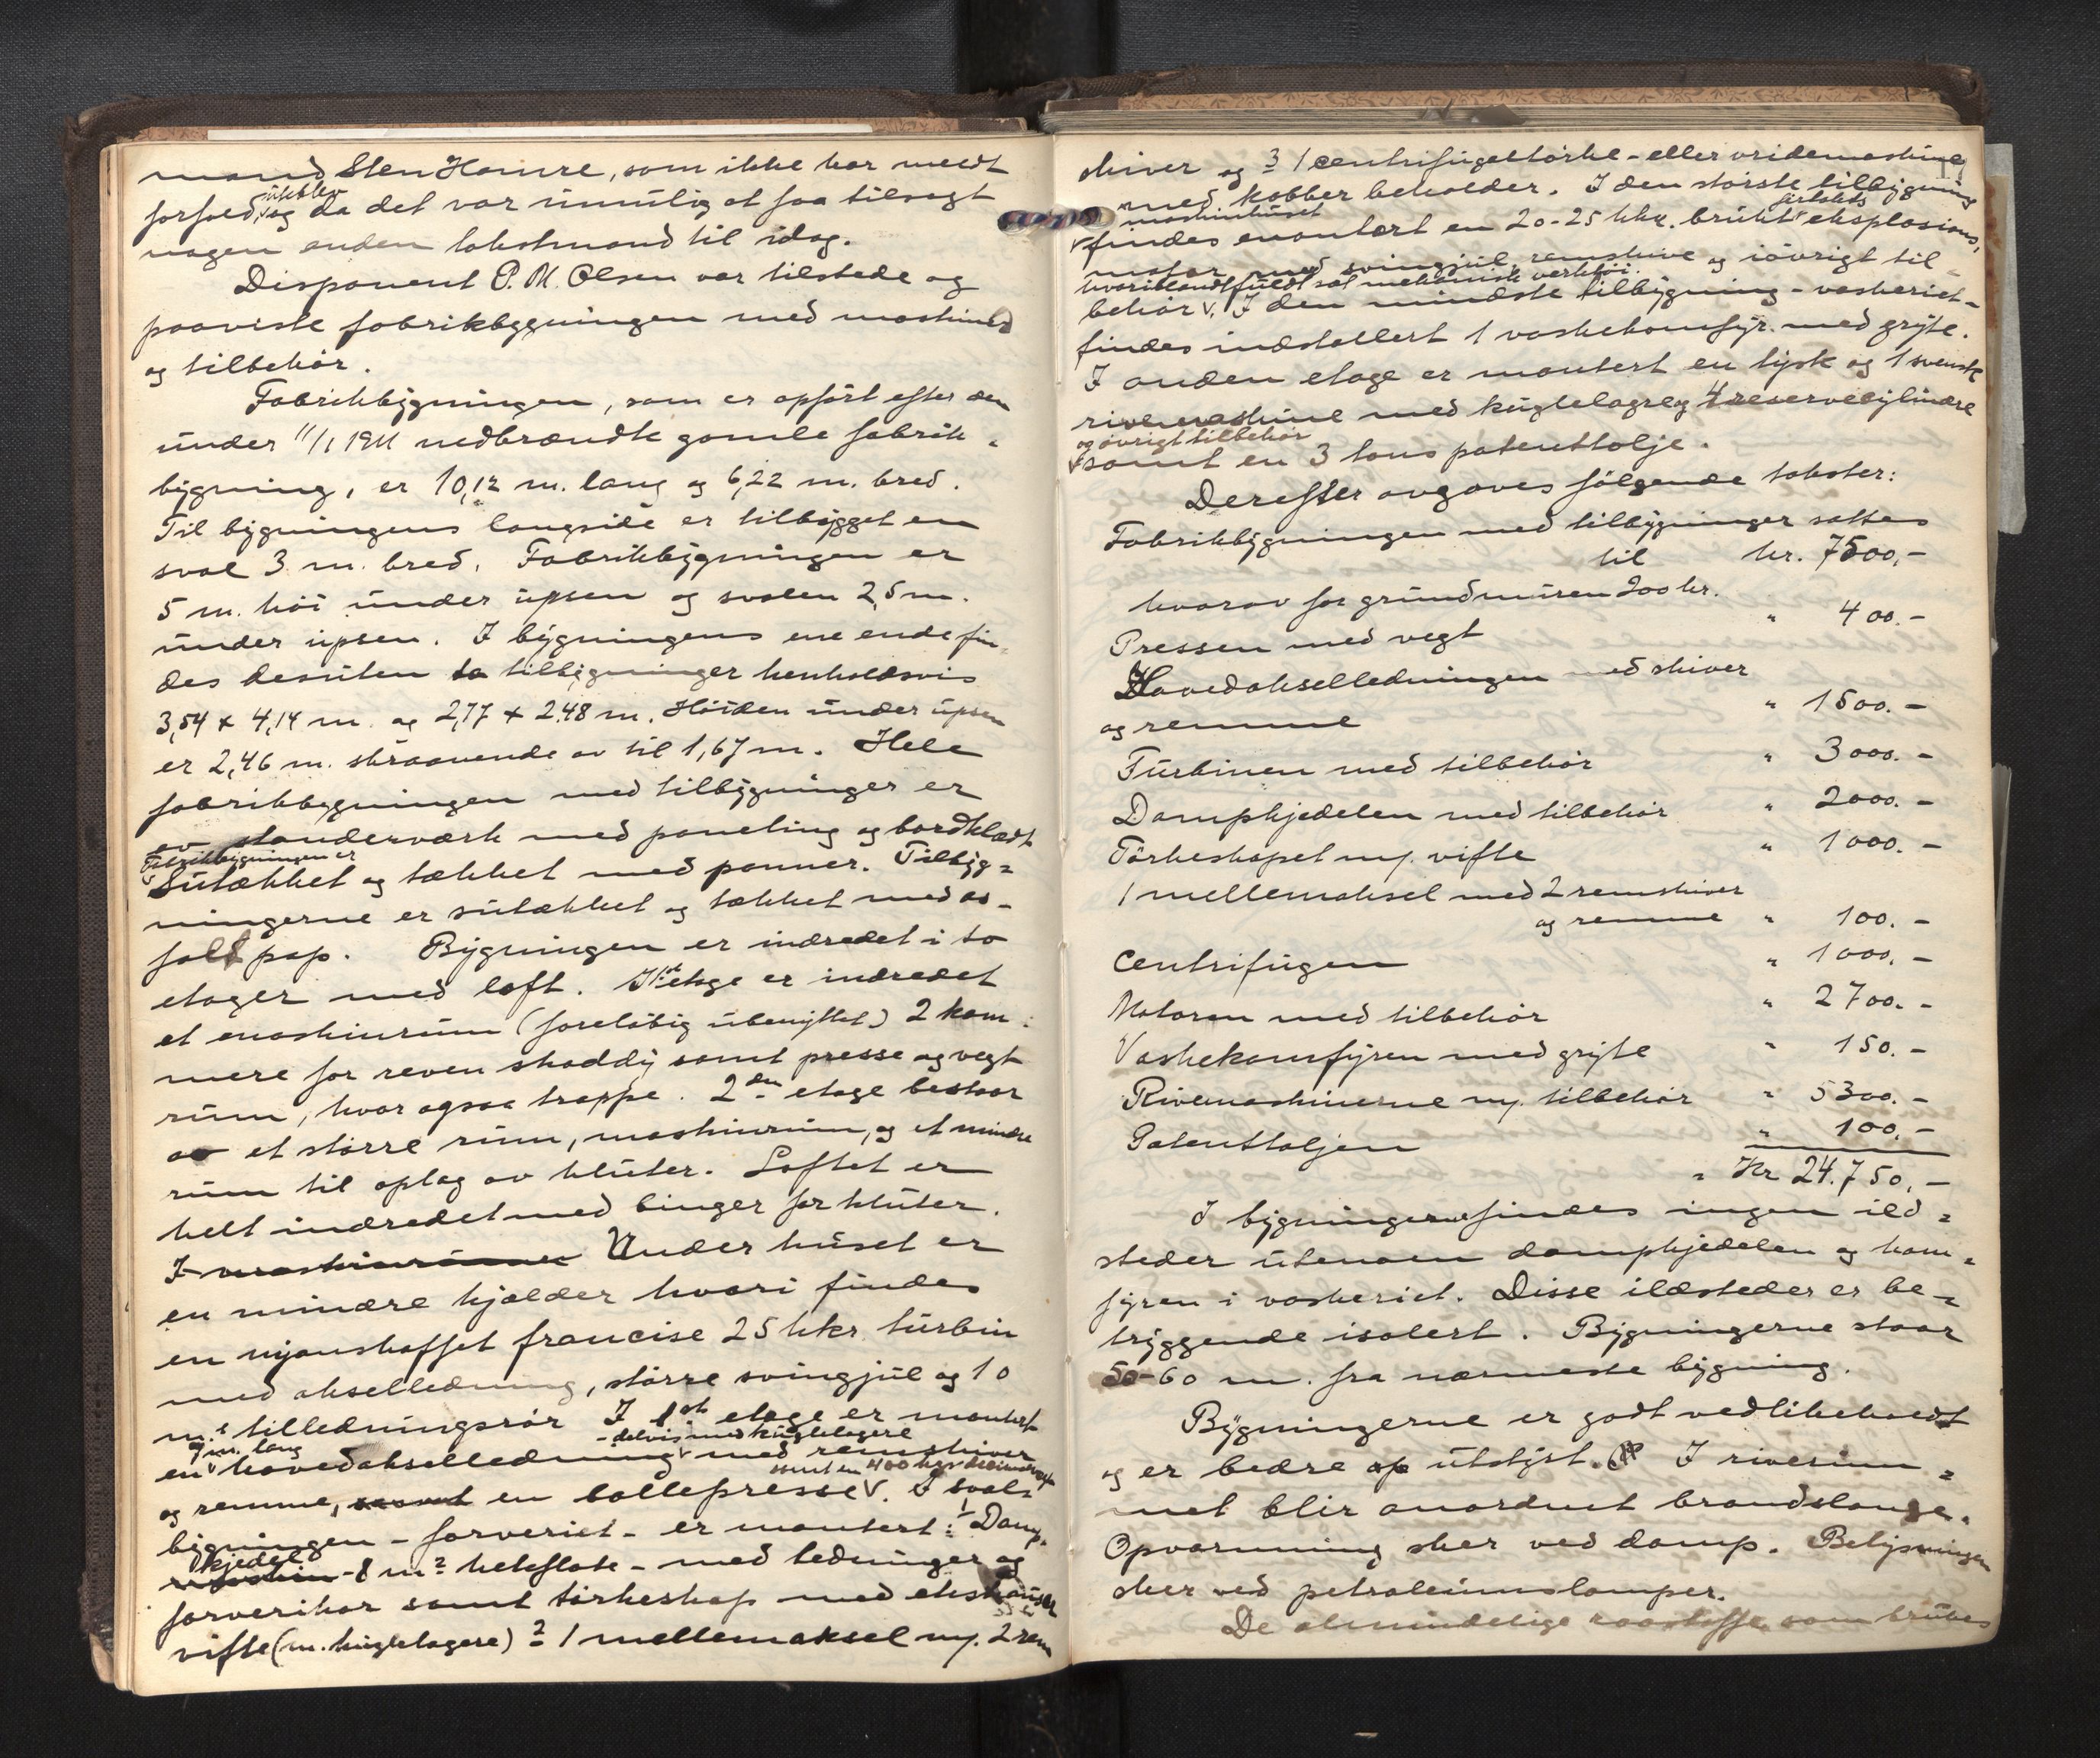 mand Sten Hamre, som ikke har meldt
forfald, uteblev og da det var umulig at faa tilsagt
nogen anden lakstmand til idag.
Disponent P. M. Olsen var tilstede og
paaviste fabrikbygningen med maskiner
og tilbehør.
Fabrikbygningen, som er opført efter den
under 11/1 1911 nedbrændte gamle fabrik-
bygning, er 10,12 m. lang og 6,22 m. bred.
Til bygningens langside er tilbygget en
sval 3 m. bred. Fabrikbygningen er
5 m. høi under upsen og svalen 2,5 m.
under upsen. I bygningens ene ende fin-
des desuten to tilbygninger henholdsvis
3,54 x 4,14 m. og 2,77 x 2,48 m. Høiden under upsen
er 2,46 m. skraanende av til 1,67 m. Hele
fabrikbygningen med tilbygninger er
av standerværk med paneling og bordklædt
Fabrikbygningen er
Sutækket og tækket med panner. Tilbyg=
ningerne er sutækket og tækket med as-
falt pap. Bygningen er indredet i to
etager med loft. I 1st etage er indredet
et maskinrum (foreløbig ubenyttet) 2 kam-
mere for reven shoddy samt presse og vegt
rum, hvor ogsaa trappe. 2den etage bestaar
av et større rum, maskinrum, og et mindre
rum til oplag av kluter. Loftet er
helt indredet med binger for kluter.
I maskinrummet Under huset er
en mindre kjælder hvori findes
en nyanskaffet francise 25 hkr turbin
med akselledning, større svingjul og 10
m.s tilledningsrør I 1st etage er montert
9 m. lang - delvis med kuglelagere
en hovedakselledning med remskiver
samt en 400 kgs decimalvegt
og remme, samt en ballepresse. I sval-
bygningen - farveriet - er montert: 1/ Damp-
kjedel
maskin - 8 m² heteflate - med ledninger og
farverikar samt tørkeskap med ekshauster
vifte (m. kuglelagere) 2/ 1 mellemaksel m/. 2 rem
skiver og 3/ 1 centrifugeltørke - eller vridemaskine
med kobber beholder. I den største tilbygning
maskinhuset
findes montert en 20-25 hkr. brukt eksplosions-
motor med svingjul, remskive og iøvrigt til-
hvoriblandt fuldt sat mekanisk verktøi.
behør. I den mindste tilbygning - vaskeriet -
findes indstallert 1 vaskekomfyr med gryte.
I anden etage er montert en tysk og 1 svensk
rivemaskine med kuglelagre og 4 reservecylindre
og øvrigt tilbehør
samt en 3 tons patenttalje.
Derefter avgaves følgende takster:
Fabrikbygningen med tilbygninger sattes
til kr. 7500,-
hvorav for grundmuren 200 kr.
Pressen med vegt " 400.-
Hovedakselledningen med skiver
og remme " 1500.-
Turbinen med tilbehør " 3000.-
Dampkjedelen med tilbehør " 2000.-
Tørkeskapet m/. vifte " 1000.-
1 mellemaksel med 2 remskiver
og remme " 100.-
Centrifugen " 1000.-
Motoren med tilbehør " 2700.-
Vaskekomfyren med gryte " 150.-
Rivemaskinerne m/. tilbehør " 5300.-
Patenttaljen " 100.-
" Kr 24.750,-
I bygningerne findes ingen ild=
steder utenom dampkjedelen og kom=
fyren i vaskeriet. Disse ildsteder er be-
tryggende isolert. Bygningerne staar
50-60 m. fra nærmeste bygning.
Bygningerne er godt vedlikeholdt
og er bedre utstyrt. I riverum=
met blir anordnet brandslange.
Opvarmning sker ved damp. Belysningen
sker ved petroleumslamper.
De almindelige raastoffe som brukes